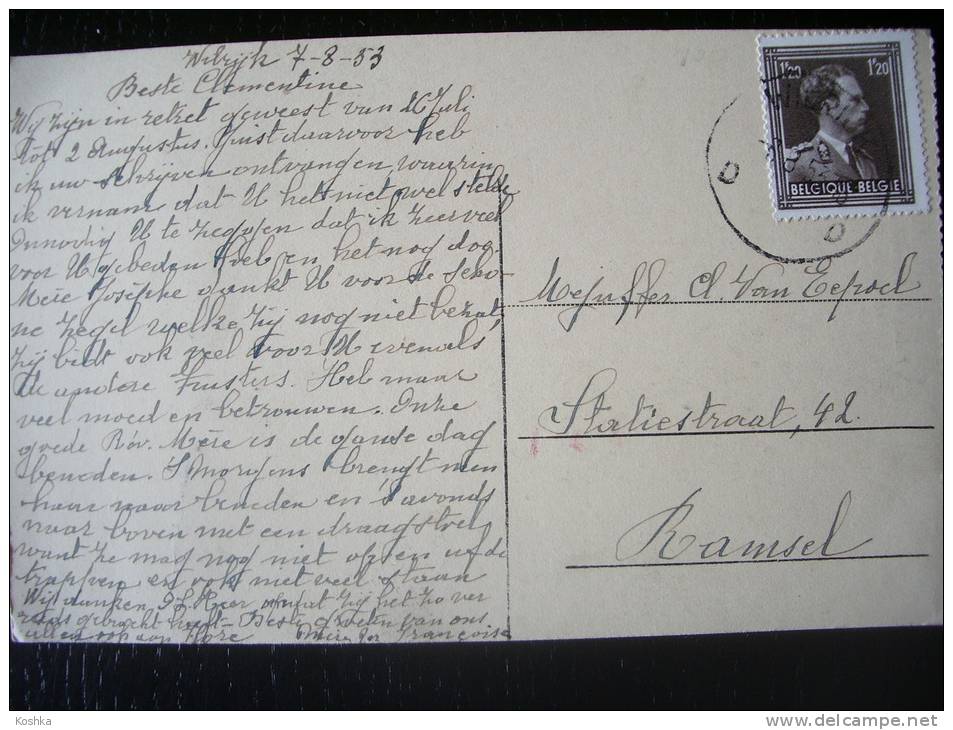 Wilrijk 7-8-53
Beste Clementine
Wij zijn in retret geweest van 26 Juli
tot 2 Augustus. Juist daarvoor heb
ik uw schrijven ontvangen, waarin
ik vernam dat U het niet wel stelde
Onnodig U te zeggen dat ik zeer veel
voor U gebeden heb en het nog doe.
Mère Josèphe dankt U voor de scho-
ne zegel welke zij nog niet bezat,
zij bidt ook veel voor U evenals
de andere Zusters. Heb maar
veel moed en betrouwen. Onze
goede Rév. Mère is de ganse dag
beneden. 'S Morgens brengt men
haar naar beneden en 's avonds
naar boven met een draagstoel
want ze mag nog niet op en af de
trappen en ook niet veel staan
Wij danken O.L.Heer omdat zij het zo ver
gebracht heeft - Beste groeten van ons
allen
Françoise
1'20 1'20
BELGIQUE-BELGIË
D D
Mejuffer Cl. Van Eepoel
Statiestraat, 42.
Ramsel
Koshka
www.delcampe.net